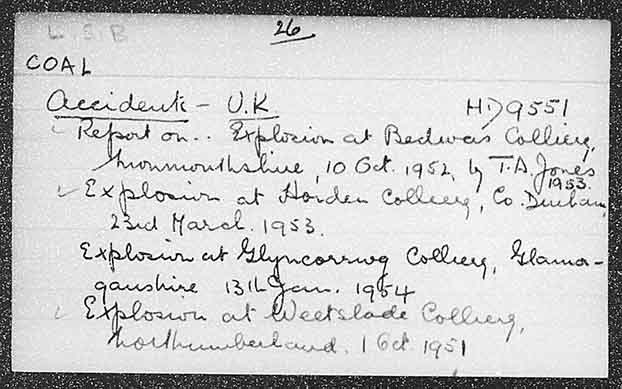 L S B
26
COAL
Accidents - U.K. HD9551
Report on.. Explosion at Bedwas Colliery,
Monmouthshire, 10 Oct. 1952, by T.A. Jones
1953.
Explosion at Horden Colliery, Co. Durham,
23rd March. 1953.
Explosion at Glyncorrwg Colliery, Glamor-
ganshire 13th Jan. 1954
Explosion at Weetslade Colliery,
Northumberland. 1 Oct. 1951